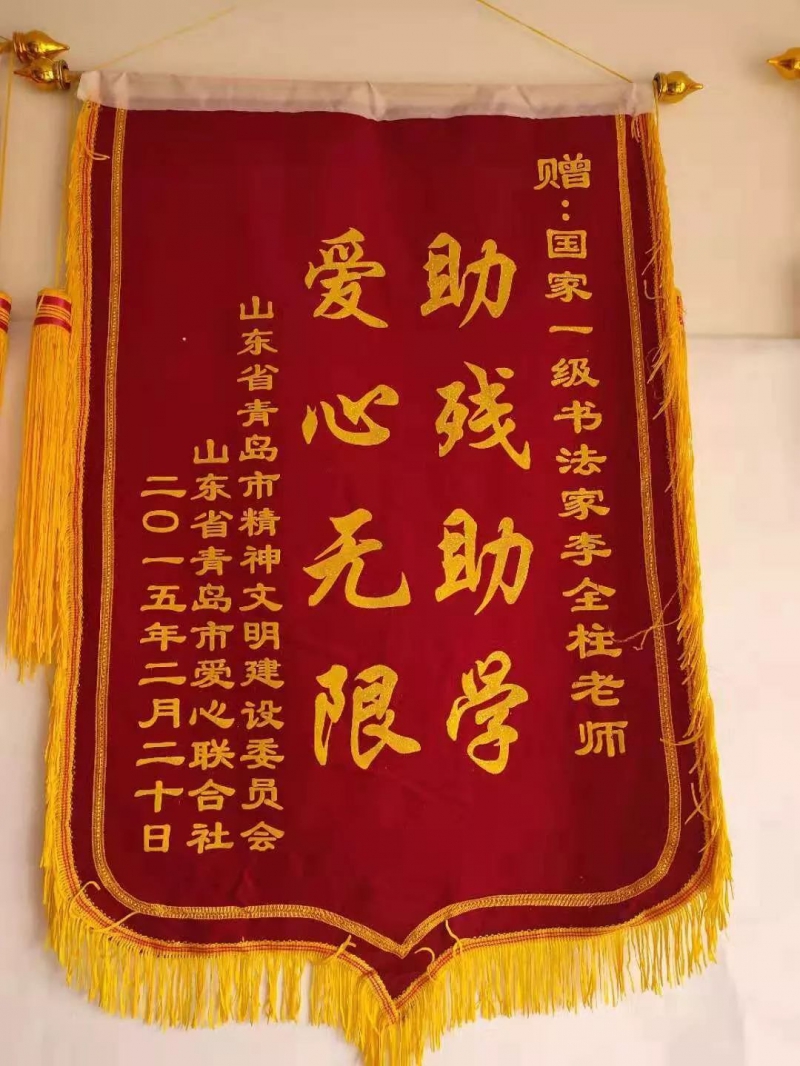 赠：国家一级书法家李全柱老师
助残助学
爱心无限
山东省青岛市精神文明建设委员会
山东省青岛市爱心联合社
二〇一五年二月二十日